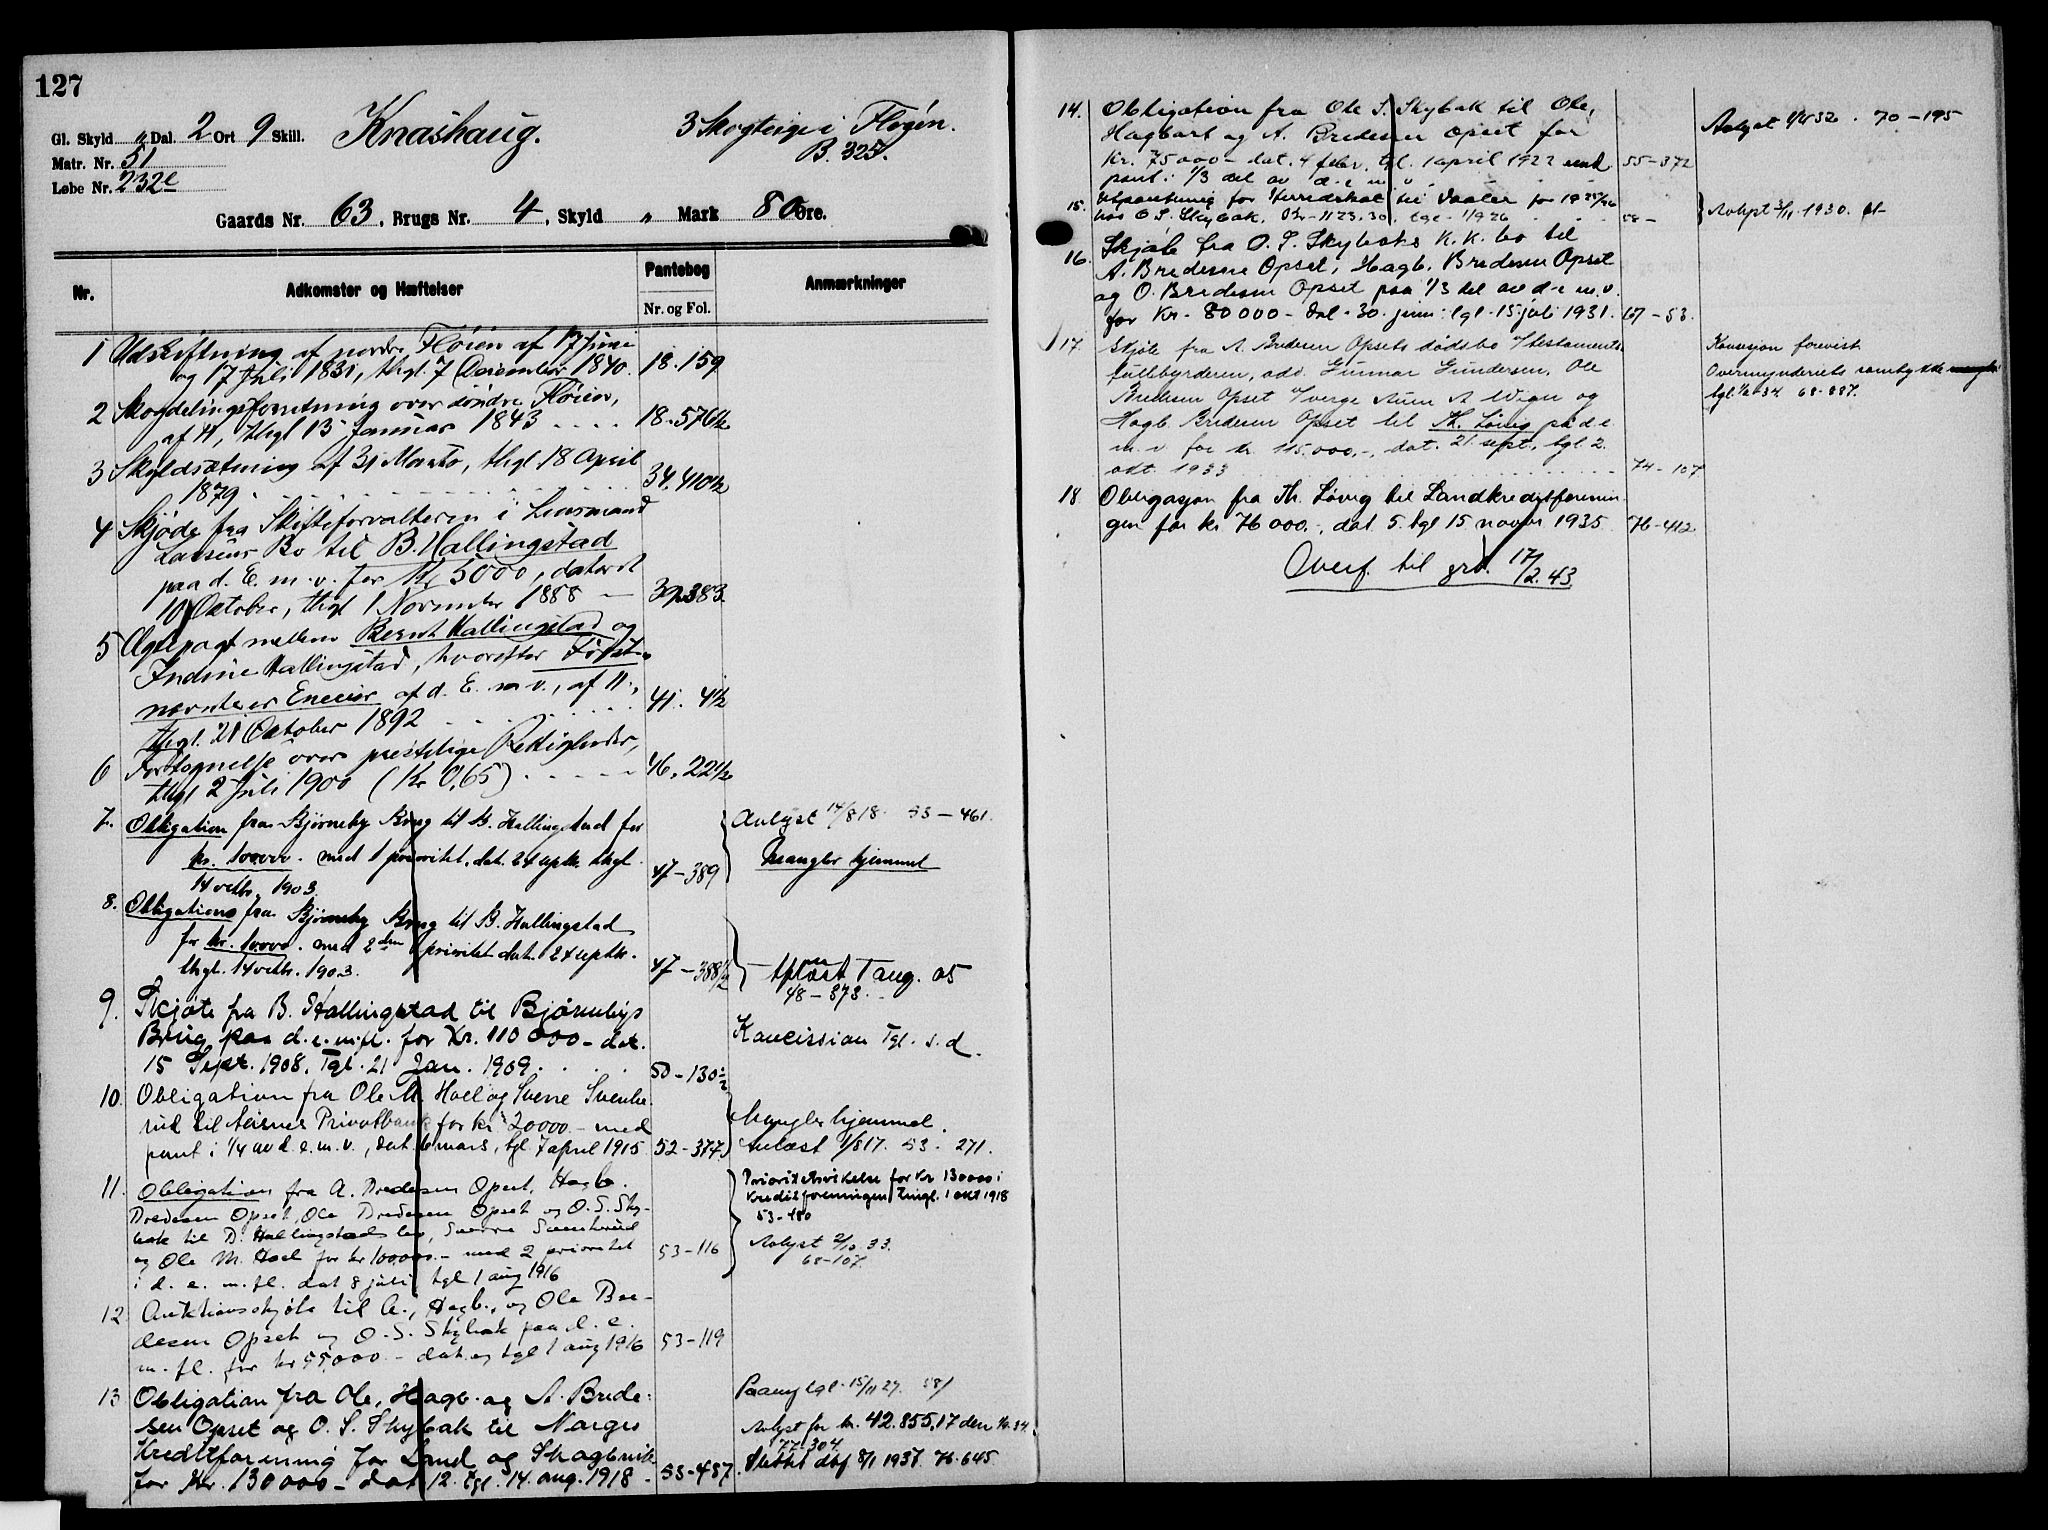 127
Gl. Skyld „ Dal. 2 Ort 9 Skill. Knashaug. 3 Skogteige i Fløgen.
B. 325.
Matr. Nr. 51
Løbe Nr. 232e
Gaards Nr. 63, Brugs Nr. 4, Skyld „ Mark 80 Øre.
Nr. Adkomster og Hæftelser Pantebog Anmærkninger
Nr. og Fol.
1 Udskiftning af nordre Fløien af 17 Juni
og 17 Juli 1831, thgl. 7 December 1840. 18.159
2 Skovdelingsforretning over søndre Fløien,
af H, thgl 13 Januar 1843 . . . . 18.576½
3 Skyldsætning af 31 Marts, thgl 18 April
1879. 34.410½
4 Skjøde fra Skifteforvalteren i Lensmand
Larsens Bo til B. Hallingstad
paa d. E. m. v. for Kr 5000, dateret
10 October, thgl 1 November 1888 — 39.383.
5 Ægtepagt mellem Bernt Hallingstad og
Indine Hallingstad, hvorefter Først-
nævnte er Eneeier af d. E. m v., af 11.,
thgl. 21 October 1892 41. 4½
6 Fortegnelse over præstelige Rettigheder,
thgl 2 Juli 1900 (Kr 0,65) 46.22½
7. Obligation fra Bjørneby Brug til B. Hallingstad for
kr. 10000. med 1 prioritet. dat. 24 septbr. thgl.
14 octbr. 1903. 47-389
Avlyst 14/8 18. 53-461.
Mangler hjemmel
8. Obligation fra Bjørneby Brug til B. Hallingstad
for kr. 10000. med 2den prioritet dat. 24 septbr.
thgl. 14 octbr. 1903. 47-388½
Aflæst 1 aug. 05
48-373.
9. Skjøte fra B. Hallingstad til Bjørnebys
Brug paa d. e. m. fl. for Kr. 110 000 - dat.
15 Sept. 1908. Tgl. 21 Jan. 1909. 50-130½
Koncission Tgl. s. d.
10. Obligation fra Ole M Hoel og Sverre Svenke-
rud til Aasnes Privatbank for kr 20000.- med
pant i 1/4 av d. e. m. v., dat. 6 mars, tgl. 7 april 1915 52-377.
Mangler hjemmel.
Avlæst 1/8 17. 53. 271.
11. Obligation fra A. Bredesen Opset, Hagb.
Bredesen Opset, Ole Bredesen Opset og O. S. Sky-
bak til B. Hallingstads bo, Sverre Svenkerud
og Ole M. Hoel for kr 100000.- med 2 prioritet
i d. e. m. fl. dat 8 juli tgl 1 aug 1916 53-116
Prioritetsvikelse for kr 130000 i
Kreditforeningen tingl. 1 okt 1918
53-480
Avlyst 2/10. 33.
68-107.
12. Auktionsskjøte til A., Hagb., og Ole Bre-
desen Opset og O. S. Skybak paa d. e.
m. fl. for kr 55000.- dat og tgl 1 aug 1916 53-119
13 Obligation fra Ole, Hagb. og A. Brede-
sen Opset og O. S. Skybak til Norges
Kreditforening for Land og Skogbruk
for Kr. 130 000 - dat 12. tgl. 14. aug. 1918 - 53-457
Paany tgl. 15/11 27. 58/
Avlyst for kr. 42.855,17 den
77-304.
Slettet dbf 8/1 1937. 76.645.
14. Obligation fra Ole S. Skybak til Ole,
Hagbart og A. Bredesen Opset for
Kr. 75000- dat. 4 febr. tgl. 1 april 1922 med
pant i 1/3 del av d. e m v. 55-372
Avlyst 32. 70-195
15. Utpantning for Herredskat til Vaaler for 1925/26
hos O S. Skybak. Kr. 1123.30. tgl. 1/9 26 58-
Avlyst 3/11. 1930. fl-
16. Skjøte fra O. S. Skybaks K. K. bo til
A. Bredesen Opset, Hagb. Bredesen Opset
og O. Bredesen Opset paa 1/3 del av d-e m. v.
for Kr. 80000 - dat. 30. juni: tgl. 15. juli 1931. 67-53.
17. Skjøte fra A. Bredesen Opsets dødsbo v/testaments-
fullbyrderen, adv. Gunnar Gundersen, Ole
Bredesen Opset v/verge Aune A. Wiger og
Hagb. Bredesen Opset til Th. Løvig på d. e.
m. v. for kr. 115.000,-, dat. 21. sept., tgl 2.
okt. 1933 74-107
Konsesjon forevist.
Overmynderiets samtykke
tgl. 34 68-887.
18. Obligasjon fra Th. Løvig til Landkreditforenin-
gen for kr 76 000.-, dat 5. tgl 15 novbr 1935. 76-412
Overf. til grb. 17/2. 43.